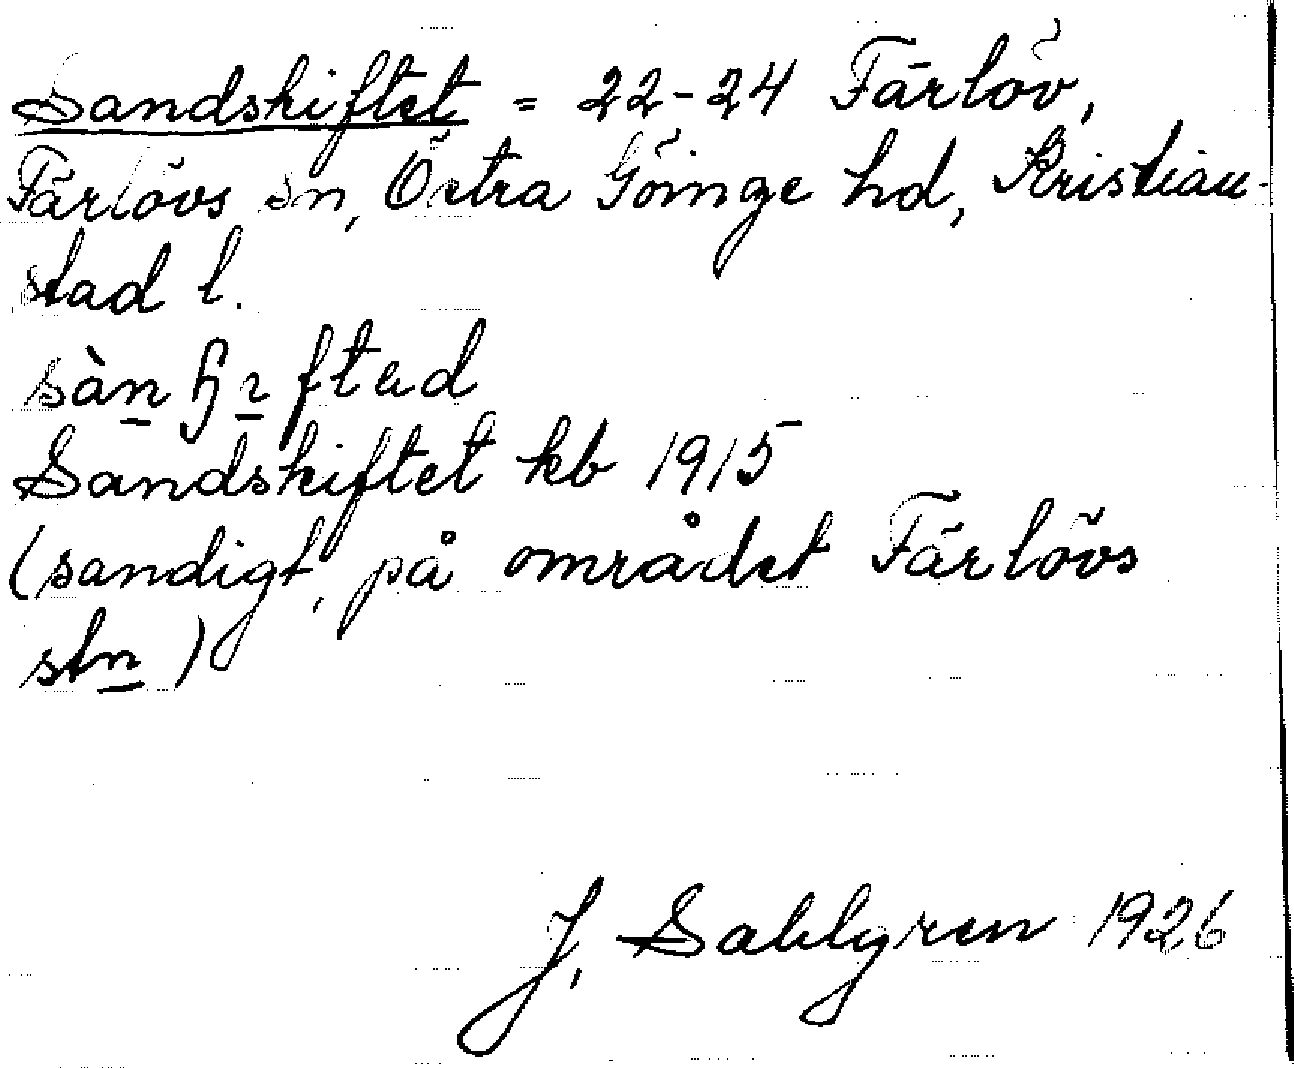 Sandskiftet = 22-24 Färlöv,
Färlövs sn, Östra Göinge hd, Kristian-
stad l.
sàn̲ɧɪ̲ftəd
Sandskiftet kb 1915
(sandigt, på området Färlövs
stn̲)
J. Sahlgren 1926